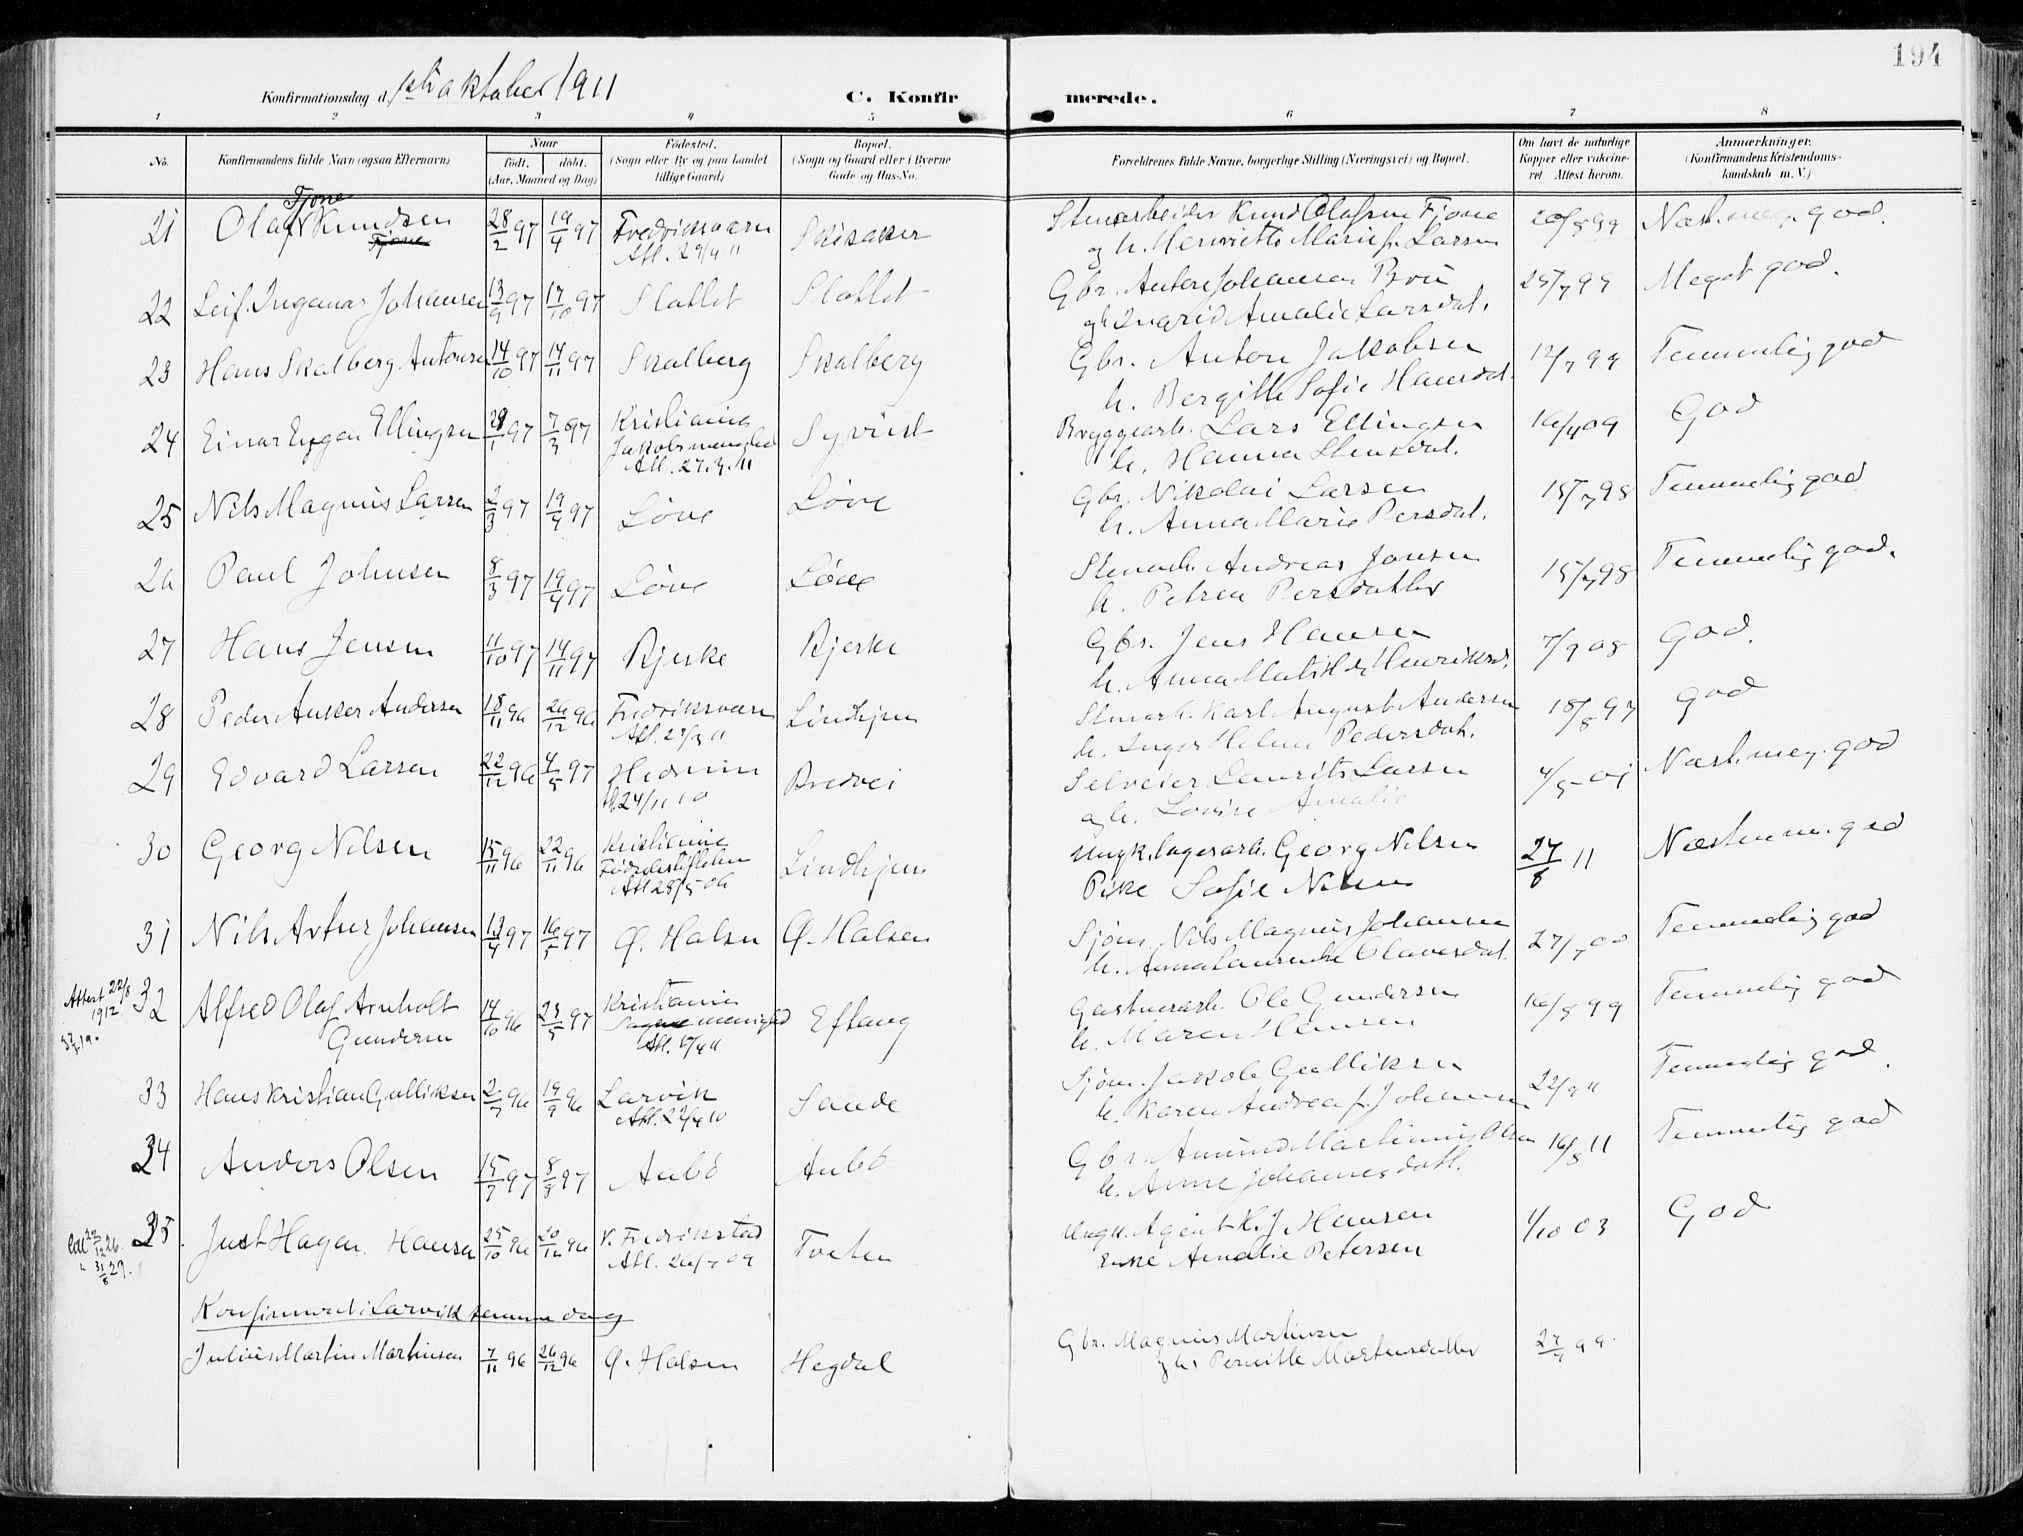 194
Konfirmationsdag d. 1ste oktober 1911
C. Konfirmerede.
1 2 3 4 5 6 7 8
No. Konfirmandens fulde Navn (ogsaa Efternavn) Naar født. døbt. (Aar, Maaned og Dag) Fødested. (Sogn eller By og paa Landet tillige Gaard) Bopæl. (Sogn og Gaard eller i Byerne Gade og Hus-No. Forældrenes fulde Navne, borgerlige Stilling (Næringsvei) og Bopæl. Om havt de naturlige Kopper eller vakcineret Attest herom. Anmærkninger. (Konfirmandens Kristendomskundskab m. V.)
Fjone
21 Olaf Knudsen 28/2 97 19/4 97 Fredriksværn Skisaker Stenarbeider Knud Olafsen Fjone 20/8 99 Næst. meg. god.
Fjone Att. 29/9 11 og h. Henriette Marie f. Larsen
22 Leif Ingemar Johansen 13/9 97 17/10 97 Slottet Slottet Gbr. Anton Johansen Bøu 25/7 99 Meget god.
og h. Ingrid Amalie Larsdat.
23 Hans Skalberg Antonsen 14/10 97 14/11 97 Skalberg Skalberg Gbr. Anton Jakobsen 12/7 99 Temmelig god
h. Bergitte Sofie Hansdat.
24 Einar Eugen Ellingsen 29/1 97 7/3 97 Kristiania Syvrist Bryggearb. Lars Ellingsen 16/4 09 God
Jakobs menighed h. Hanna Stensdat.
Att. 27.3.11
25 Nils Magnus Larsen 2/3 97 19/4 97 Løve Løve Gbr. Nikolai Larsen 15/7 98 Temmelig god
h. Anna Marie Persdat.
26 Paul Johnsen 8/3 97 19/4 97 Løve Løve Stenarb. Andreas Jonsen 15/7 98 Temmelig god.
h. Petrea Persdatter
27 Hans Jensen 11/10 97 14/11 97 Bjerke Bjerke Gbr. Jens Hansen 7/9 08 God.
h. Anna Matilde Henriksd.
28 Peder Anker Andersen 18/11 96 26/12 96 Fredriksværn Lindhjem Stenarb. Karl August Andersen 18/8 97 God
Att. 27/3 11 h. Inger Helene Pedersdat.
29 Edvard Larsen 22/12 96 4/5 97 Hedrum Bredvei Selveier Laurits Larsen 4/5 01 Næst. meg. god
Att. 24/11 10 og h. Lovise Amalie
30 Georg Nilsen 15/11 96 22/11 96 Kristiania Lindhjem Ungk. lagerarb. Georg Nilsen 27/6 11 Næsten m. god
Fødselsstiftelsen Pike Sofie Nilsen
Att 28/5 06
31 Nils Artur Johansen 13/4 97 16/5 97 Ø. Halsen Ø. Halsen Sjøm. Nils Magnus Johansen 27/7 00 Temmelig god
h. Anna Laurentse Olavesdat.
Attest 22/8 1912
32 Alfred Olaf Arnholt 14/10 96 23/5 97 Kristiania Eftang Gastverarb. Ole Gundersen 16/8 99 Temmelig god
Gundersen Sagene menighed h. Maren Hansen
Att. 6/4 11
33 Hans Kristian Gulliksen 2/7 96 19/9 96 Larvik Sande Sjøm. Jakob Gulliksen 22/9 11 Temmelig god.
Att. 27/4 10 h. Karen Andrea f. Johansen
34 Anders Olsen 15/7 97 8/8 97 Aubö Aubö Gbr. Amund Martinius Olsen 16/8 11 Temmelig god
h. Anne Johannesdatt.
35. Just Hagen Hansen 25/10 96 20/12 96 V. Fredrikstad Tveten Ungk. Agent H. J. Hansen 1/10 03 God
Att. 26/7 09 Enke Amalie Petersen
Konfirmert i Larvik samme dag
Julius Martin Martinsen 7/11 96 26/12 96 Ø. Halsen Hegdal Gbr. Magnus Martinsen 27/7 99.
og h. Pernille Mortensdatter